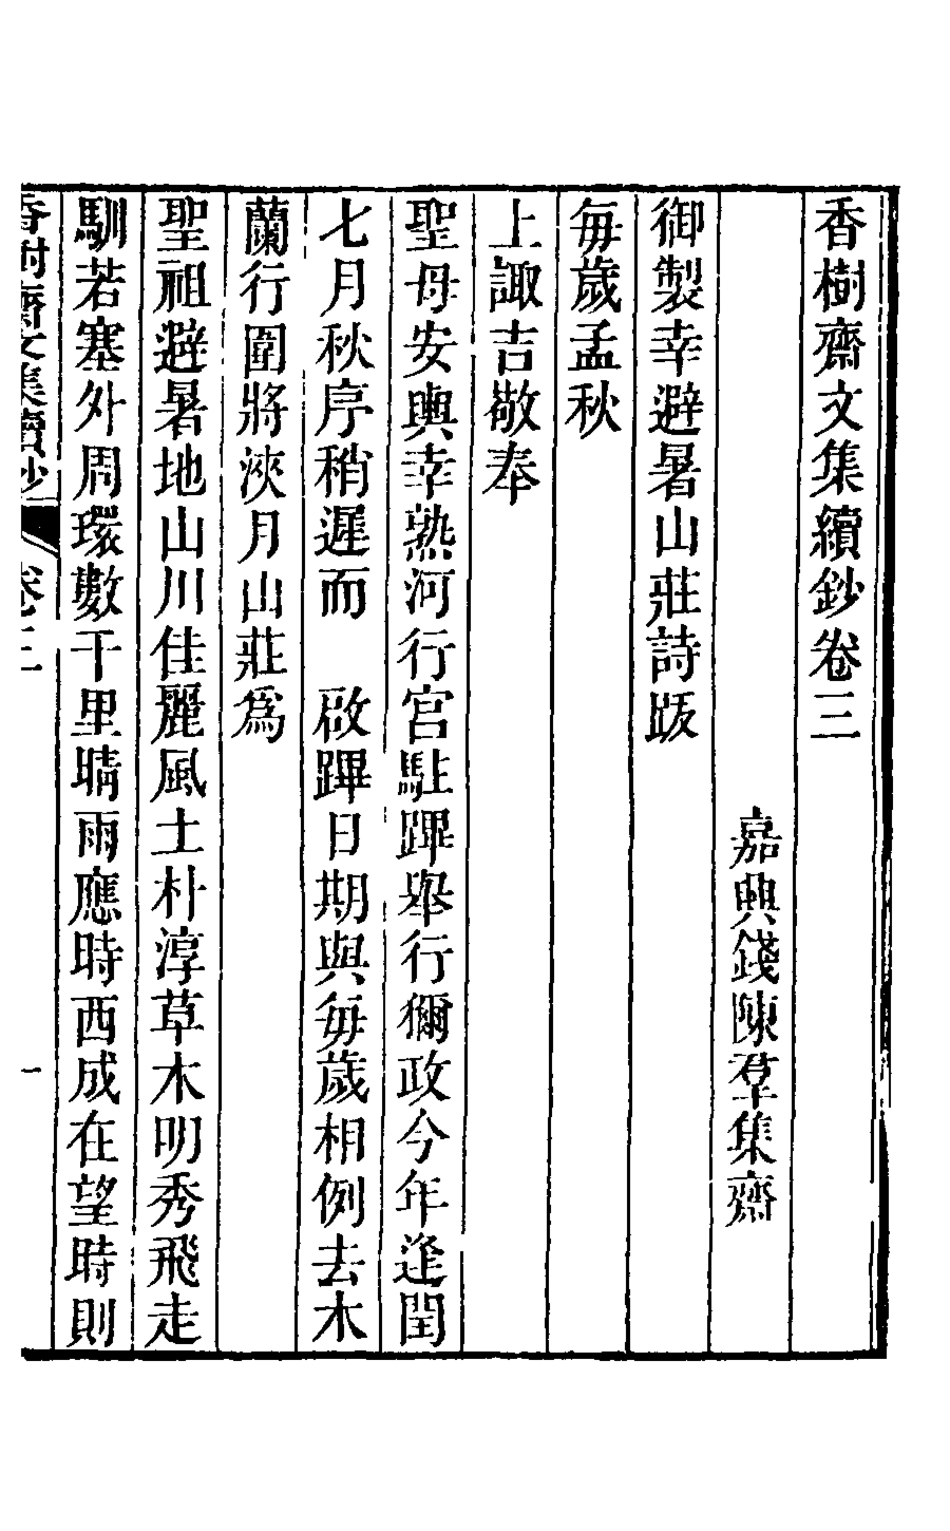 香樹齋文集續鈔卷三
嘉興錢陳羣集齋
御製幸避暑山莊詩跋
每歲孟秋
上諏吉敬奉
聖母安輿幸熱河行宮駐蹕舉行獮政今年逢閏
七月秋序稍遲而　啟蹕日期與每歲相例去木
蘭行圍將浹月山莊爲
聖祖避暑地山川佳麗風土朴淳草木明秀飛走
馴若塞外周環數千里晴雨應時西成在望時則
香樹齋文集續鈔　卷三　一